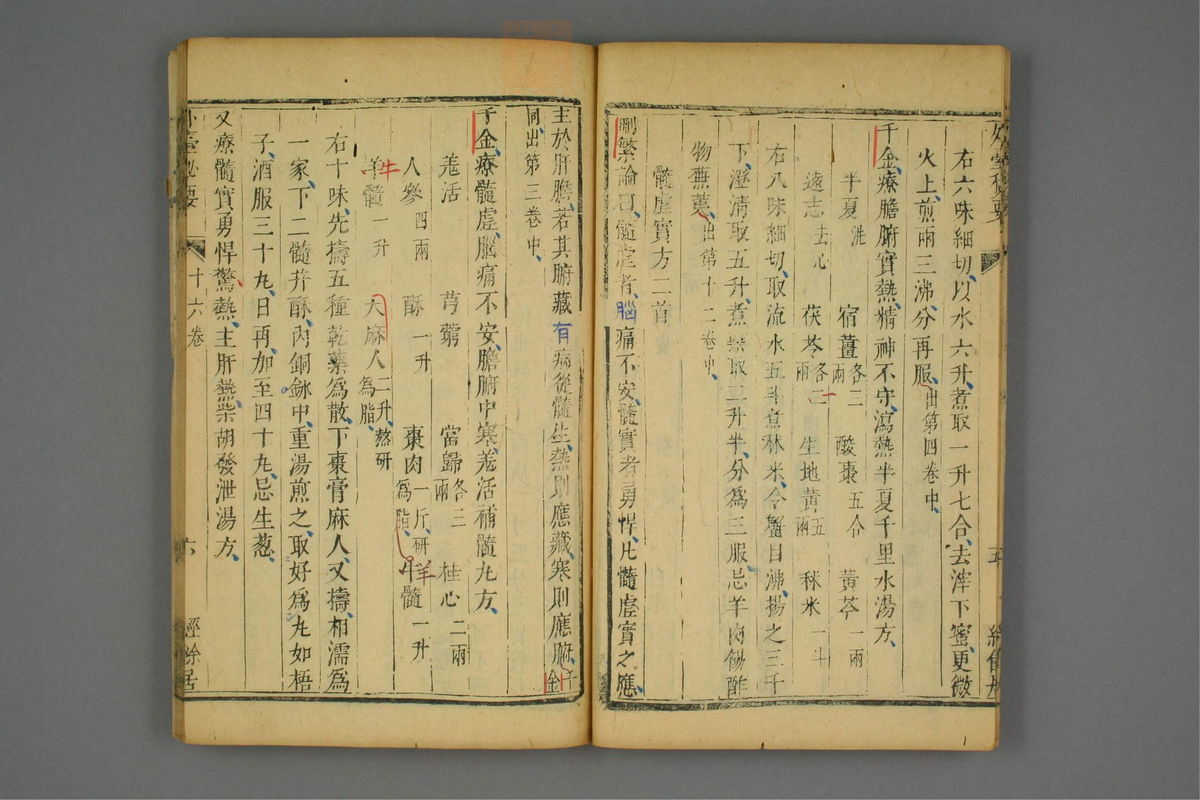 右六味細切以水六升煮取一升七合去滓下蜜更微
火上煎兩三沸分再服出第四卷中
千金療膽腑實熱精神不守瀉熱半夏千里水湯方
半夏洗 宿薑各三兩 酸棗五合 黃芩一兩
遠志去心 茯苓各二兩 生地黃五兩 秫米一斗
右八味細切取流水五斗煮秫米令蟹目沸揚之三千
下澄清取五升煮取二升半分為三服忌羊肉餳酢
物蕪荑出第十二卷中
髓虛實方二首
刪繁論曰髓虛者腦痛不安髓實者勇悍凡髓虛實之應
主於肝膽若其腑藏有病從髓生熱則應藏寒則應腑千金
同出第三卷中
千金療髓虛腦痛不安膽腑中寒羌活補髓丸方
羌活 芎藭 當歸各三兩 桂心二兩
人參四兩 酥一升 棗肉一斤研為脂 羊牛髓一升
牛羊髓一升 大麻人二升熬研為脂
右十味先擣五種乾藥為散下棗膏麻人又擣相濡為
一家下二髓并酥內銅鉢中重湯煎之取好為丸如梧
子酒服三十丸日再加至四十丸忌生葱
又療髓實勇悍驚熱主肝熱柴胡發泄湯方
外臺祕要 十六卷 六 經餘居